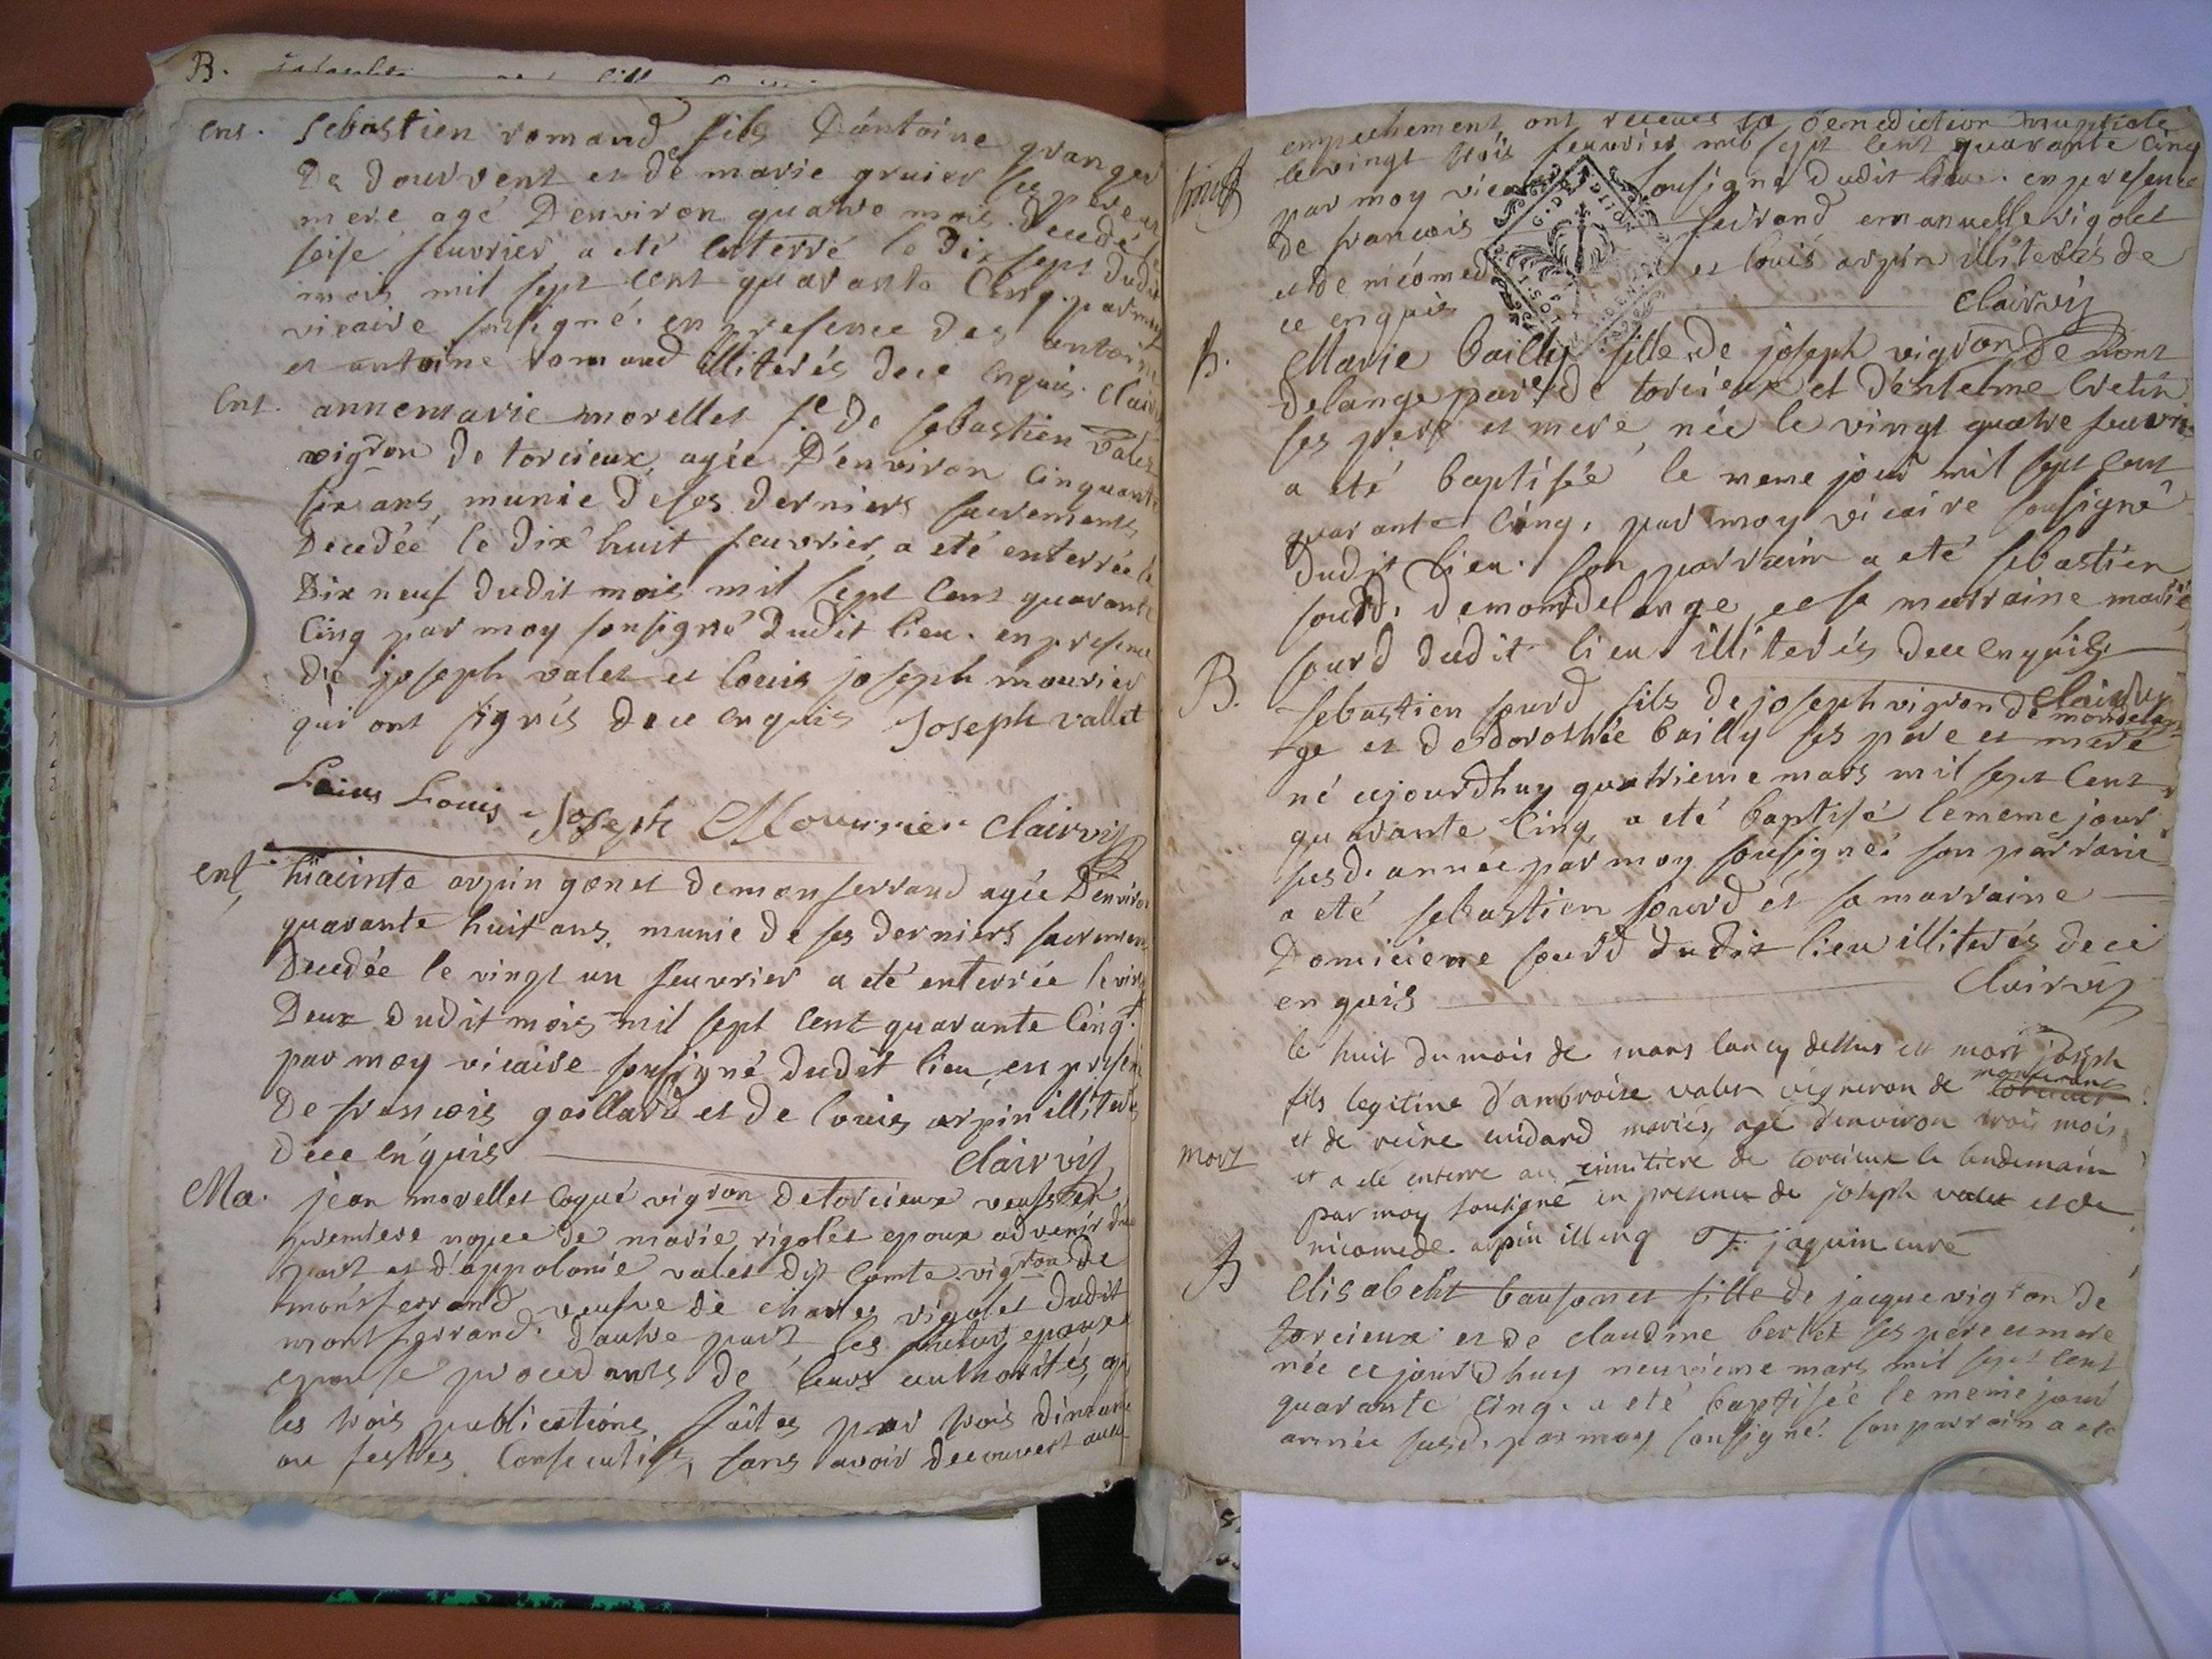 B.
ent. Sebastien romand fils D'antoine granger
De dourvent et de marie gruier ses pere et
mere agé D'environ quatre mois Decedé le
seise feuvrier a eté enterré le Dix sept dudit
mois mil sept cent quarante Cinq par moy
vicaire sousigné. en presence des antoine
et antoine romand illiterés dece enquis. Clairvis
Ent. annemarie morellet fe. De sebastien valet
vigron de torcieux, agée D'environ Cinquante
six ans, munie de ses derniers sacrements
Decedée le dix huit feuvrier, a eté enterrée le
Dix neuf dudit mois mil sept Cent quarante
Cinq par moy sousigné dudit lieu. en presence
De joseph valet et louis joseph mourier
qui ont signés dece enquis Joseph vallet
Louis Joseph Mourrier Clairvis
ent, hiacinte arpin gonet demonferrand agée D'environ
quarante huit ans, munie de ses derniers sacremens
Decedée le vingt un feuvrier a eté enterrée le vingt
Deux dudit mois mil sept Cent quarante Cinq.
par moy vicaire sousigné dudit lieu, en presence
De francois gaillard et de louis arpin illiterés
Dece enquis Clairvis
Ma. jean morellet Coqué vigron detorcieux veufs en
premiere nopce de marie rigolet epoux advenir d'une
part et d'appolonie valet dit Comte. vigron de
montferrand veufve de charles rigolet dudit
montferrand. d'autre part, les futurs epoux
epouse procedants de leurs authorités, ap
les trois publications faites par trois dimanc
ou festes Consecutifs, sans avoir decouvert aucun
empechement ont receues la benediction nuptiale
le vingt trois feuvrier mil sept Cent quarante Cinq
par moy vicaire sousigné dudit lieu. en presence
de francois ferrand, emanuelle rigolet
et de nicomede et louis arpin illiterés de
ce enquis Clairvis
B. Marie bailly fille de joseph vigron de mont
delange par. de torcieux et d'entelme Cretin
ses pere et mere, née le vingt quatre feuvrie
a eté baptisée le meme jour mil sept Cent
quarante Cinq, par moy vicaire sousigné
dudit lieu. son parrain a eté sebastien
sourd, demondelange, et sa marraine marie
sourd dudit lieu illiterés dece enquis
Clairvis
B. Sebastien sourd, fils de joseph vigron de mondelan
ge et de dorothée bailly ses pere et mere
né cejourdhuy quatrieme mars mil sept Cent
quarante Cinq, a eté baptisé lememe jour
susd. année par moy sousigné. son parrain
a eté sebastien sourd et sa marraine
Domiciene sourd dudit lieu illiterés dece
enquis Clairvis
le huit du mois de mars lan cy dessus est mort joseph
fils legitime d'ambroise valet vigneron de montferrand
et de reine cuidard mariés, agé d'environ trois mois
mort et a eté enterre au cimitiere de torcieux le lendemain
par moy sousigné en presence de joseph valet et de
nicomede. arpin ill enq F. jaquin curé
B Elisabeht bausonet fille de jacque vigron de
torcieux et de claudine berlet ses pere et mere
née cejourdhuy neuvieme mars mil sept Cent
quarante Cinq. a eté baptisée le meme jour
année susd. par moy sousigné. son parrain a eté